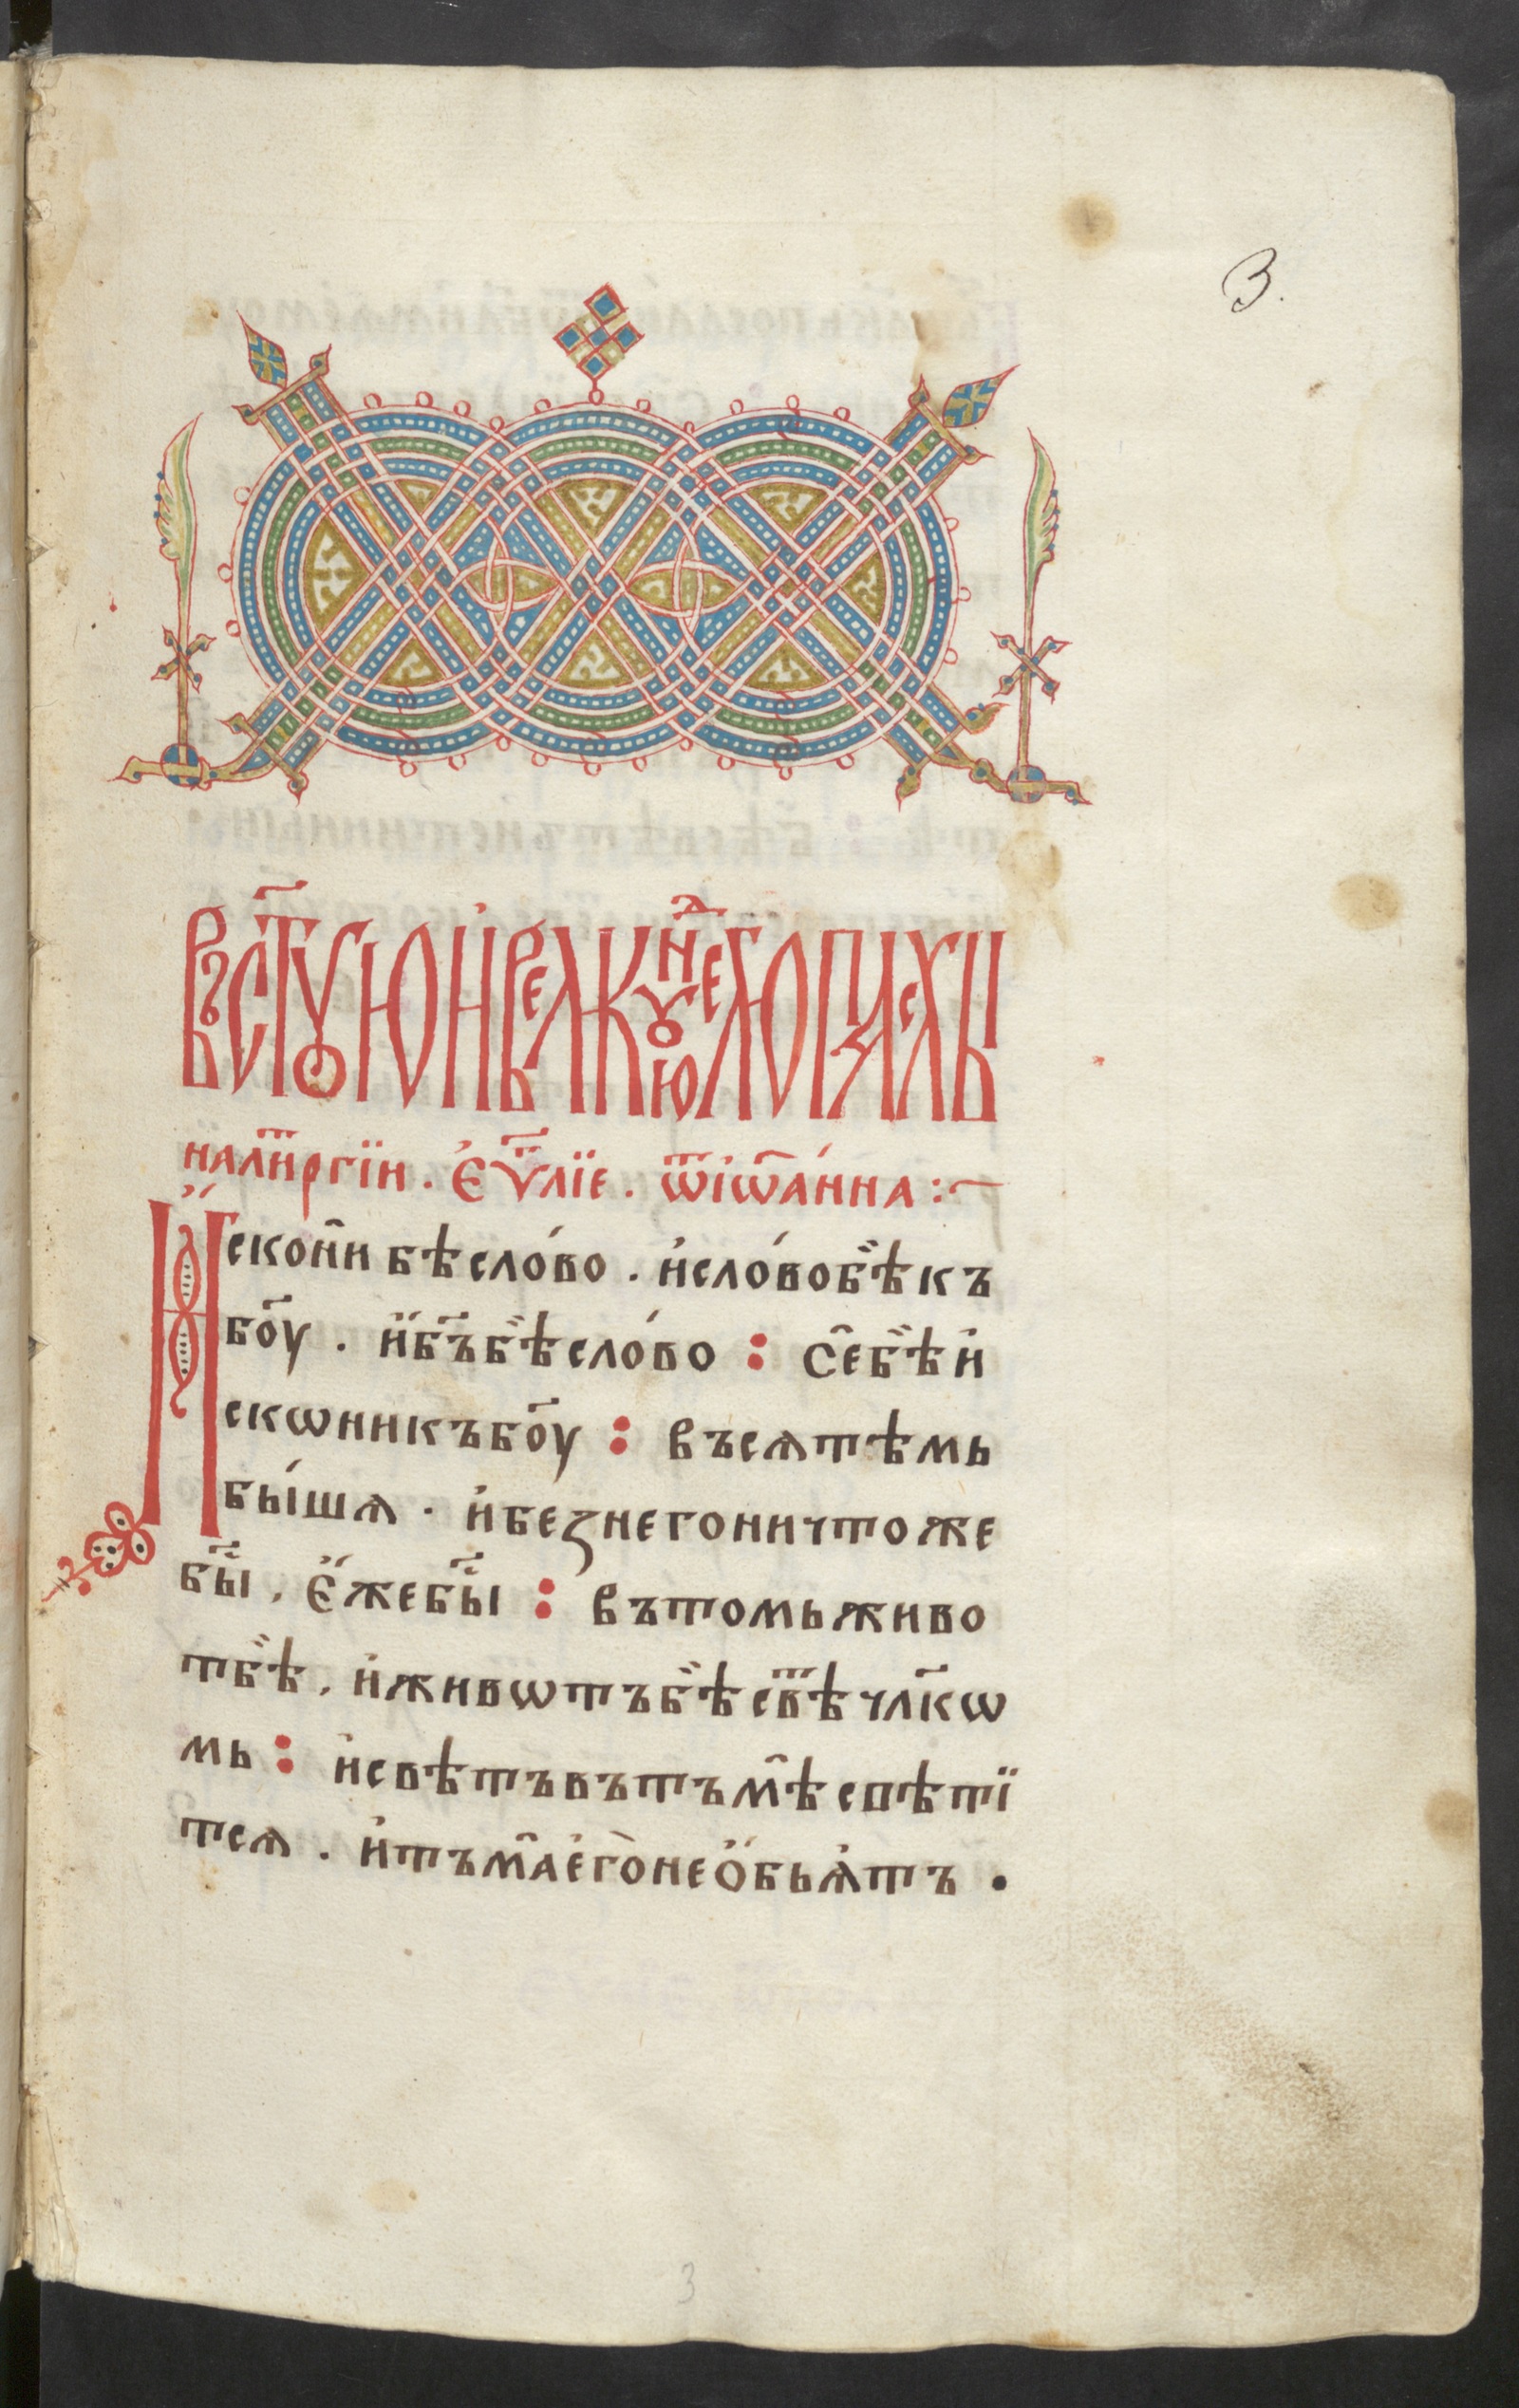 3.
Въ ст҃ꙋю и҆ велікꙋю неⷣ҇лю пасхы
на лиⷮрⷢ҇їи . є҆ѵⷢ҇лїе . ѿ і҆ѡа́нна :~
И҆скони бѣ сло́во . и҆ сло́во бѣ̏ къ
бо҃у . и҆ б҃ъ бѣ̏ сло́во : се̑ бѣ̏ и҆
скѡни къ бо҃у : въсѧ тѣмь
бы́шѧ . и҆ без него ничтоже
бы́сⷭ҇ . є҆́же бы́сⷭ҇ : въ томь живо
т бѣ̏ . и҆ живѡтъ бѣ̏ свⷮѣ чл҃кѡ
мь : и҆ свѣтъ въ тъмѣ̑ свѣтї
тсѧ . и҆ тъма̑ є҆го̀ не ѻ҆бьѧ́тъ .
3